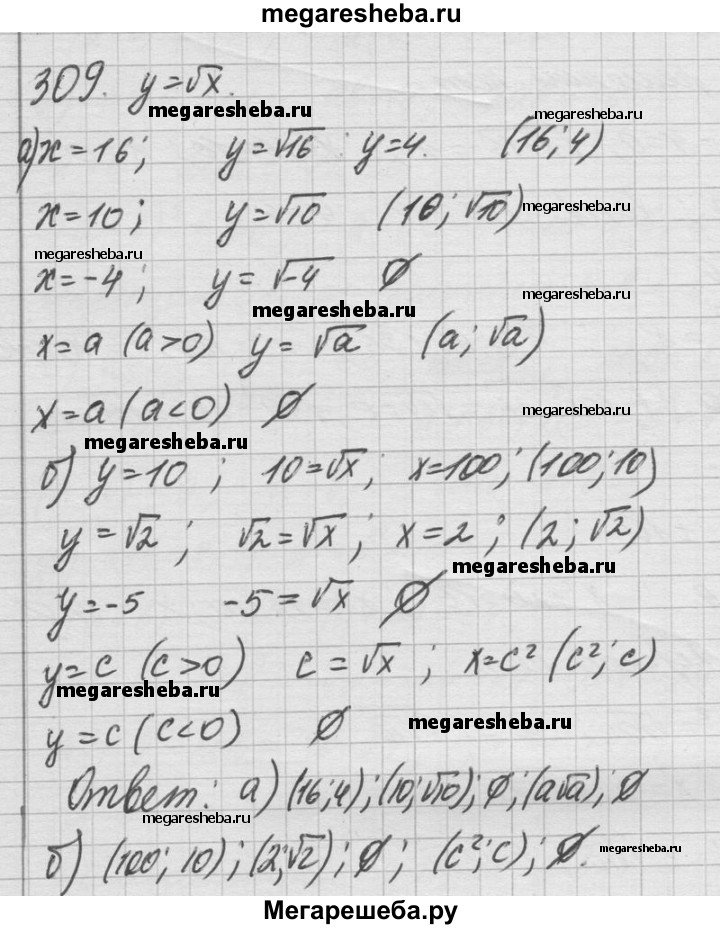 megaresheba.ru
309. y=√x.
megaresheba.ru
megaresheba.ru
а) x=16; y=√16 ; y=4. (16; 4)
x=10; y=√10 (10; √10) megaresheba.ru
megaresheba.ru
x=-4; y=√-4 ∅
megaresheba.ru
megaresheba.ru
x=a (a>0) y=√a (a; √a)
x=a (a<0) ∅ megaresheba.ru
megaresheba.ru
б) y=10 ; 10=√x; x=100; (100; 10)
y=√2 ; √2=√x ; x=2 ; (2; √2)
megaresheba.ru
y=-5 -5=√x ∅
y=c (c>0) c=√x ; x=c² (c²; c)
megaresheba.ru
y=c (c<0) ∅ megaresheba.ru
Ответ: а) (16; 4); (10; √10); ∅; (a√a); ∅
megaresheba.ru
б) (100; 10); (2; √2); ∅; (c²; c); ∅. megaresheba.ru
Мегарешеба.ру